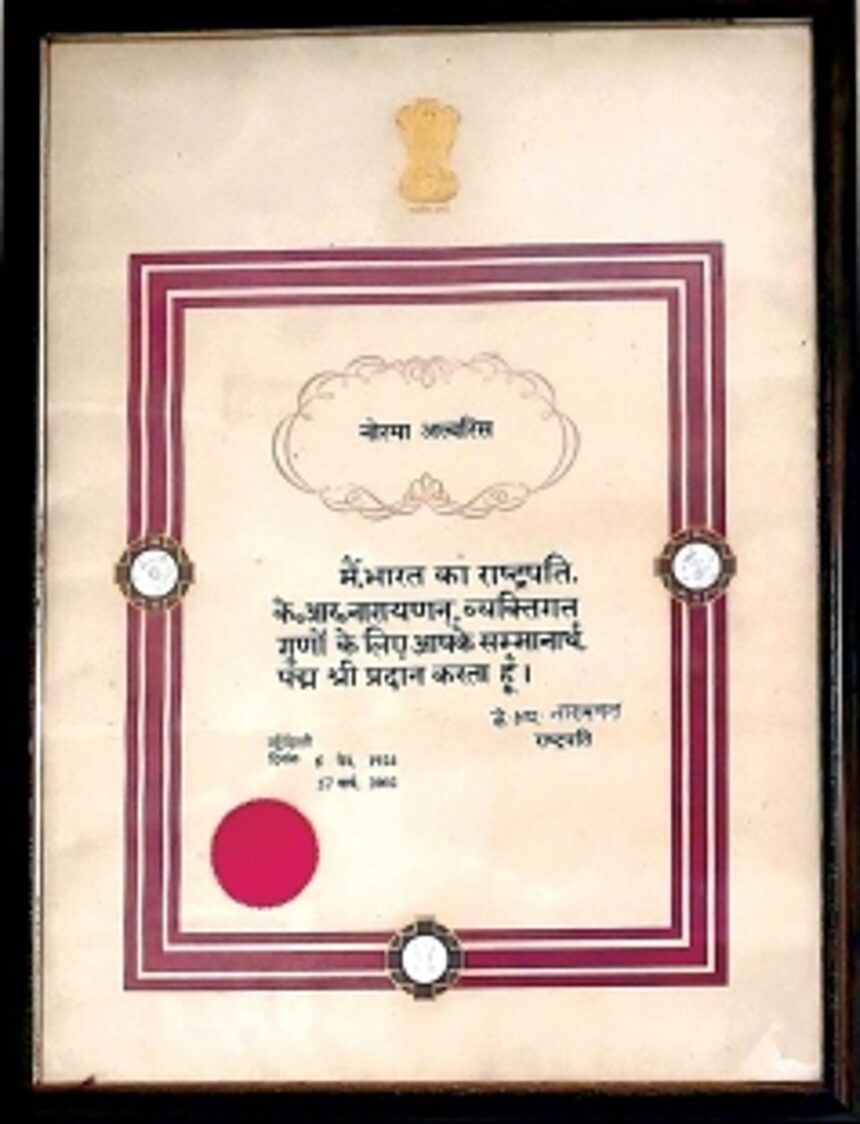 नोरमा आल्वारिस
मैं, भारत का राष्ट्रपति,
के॰ आर॰ नारायणन्, व्यक्तिगत
गुणों के लिए आपके सम्मानार्थ
पद्म श्री प्रदान करता हूँ ।
नारायणन
राष्ट्रपति
नई दिल्ली
दिनांक 6 चैत्र, 1924
27 मार्च, 2002